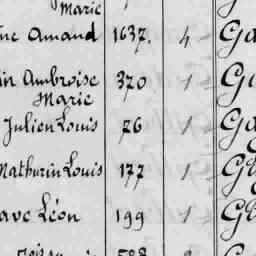 Marie
Amand 1637. 4 Ga
in Ambroise 320 1 G
Marie
Julien Louis 26 1 Ga
Mathurin Louis 177 1 Gl
ave Léon 199 1 Gl